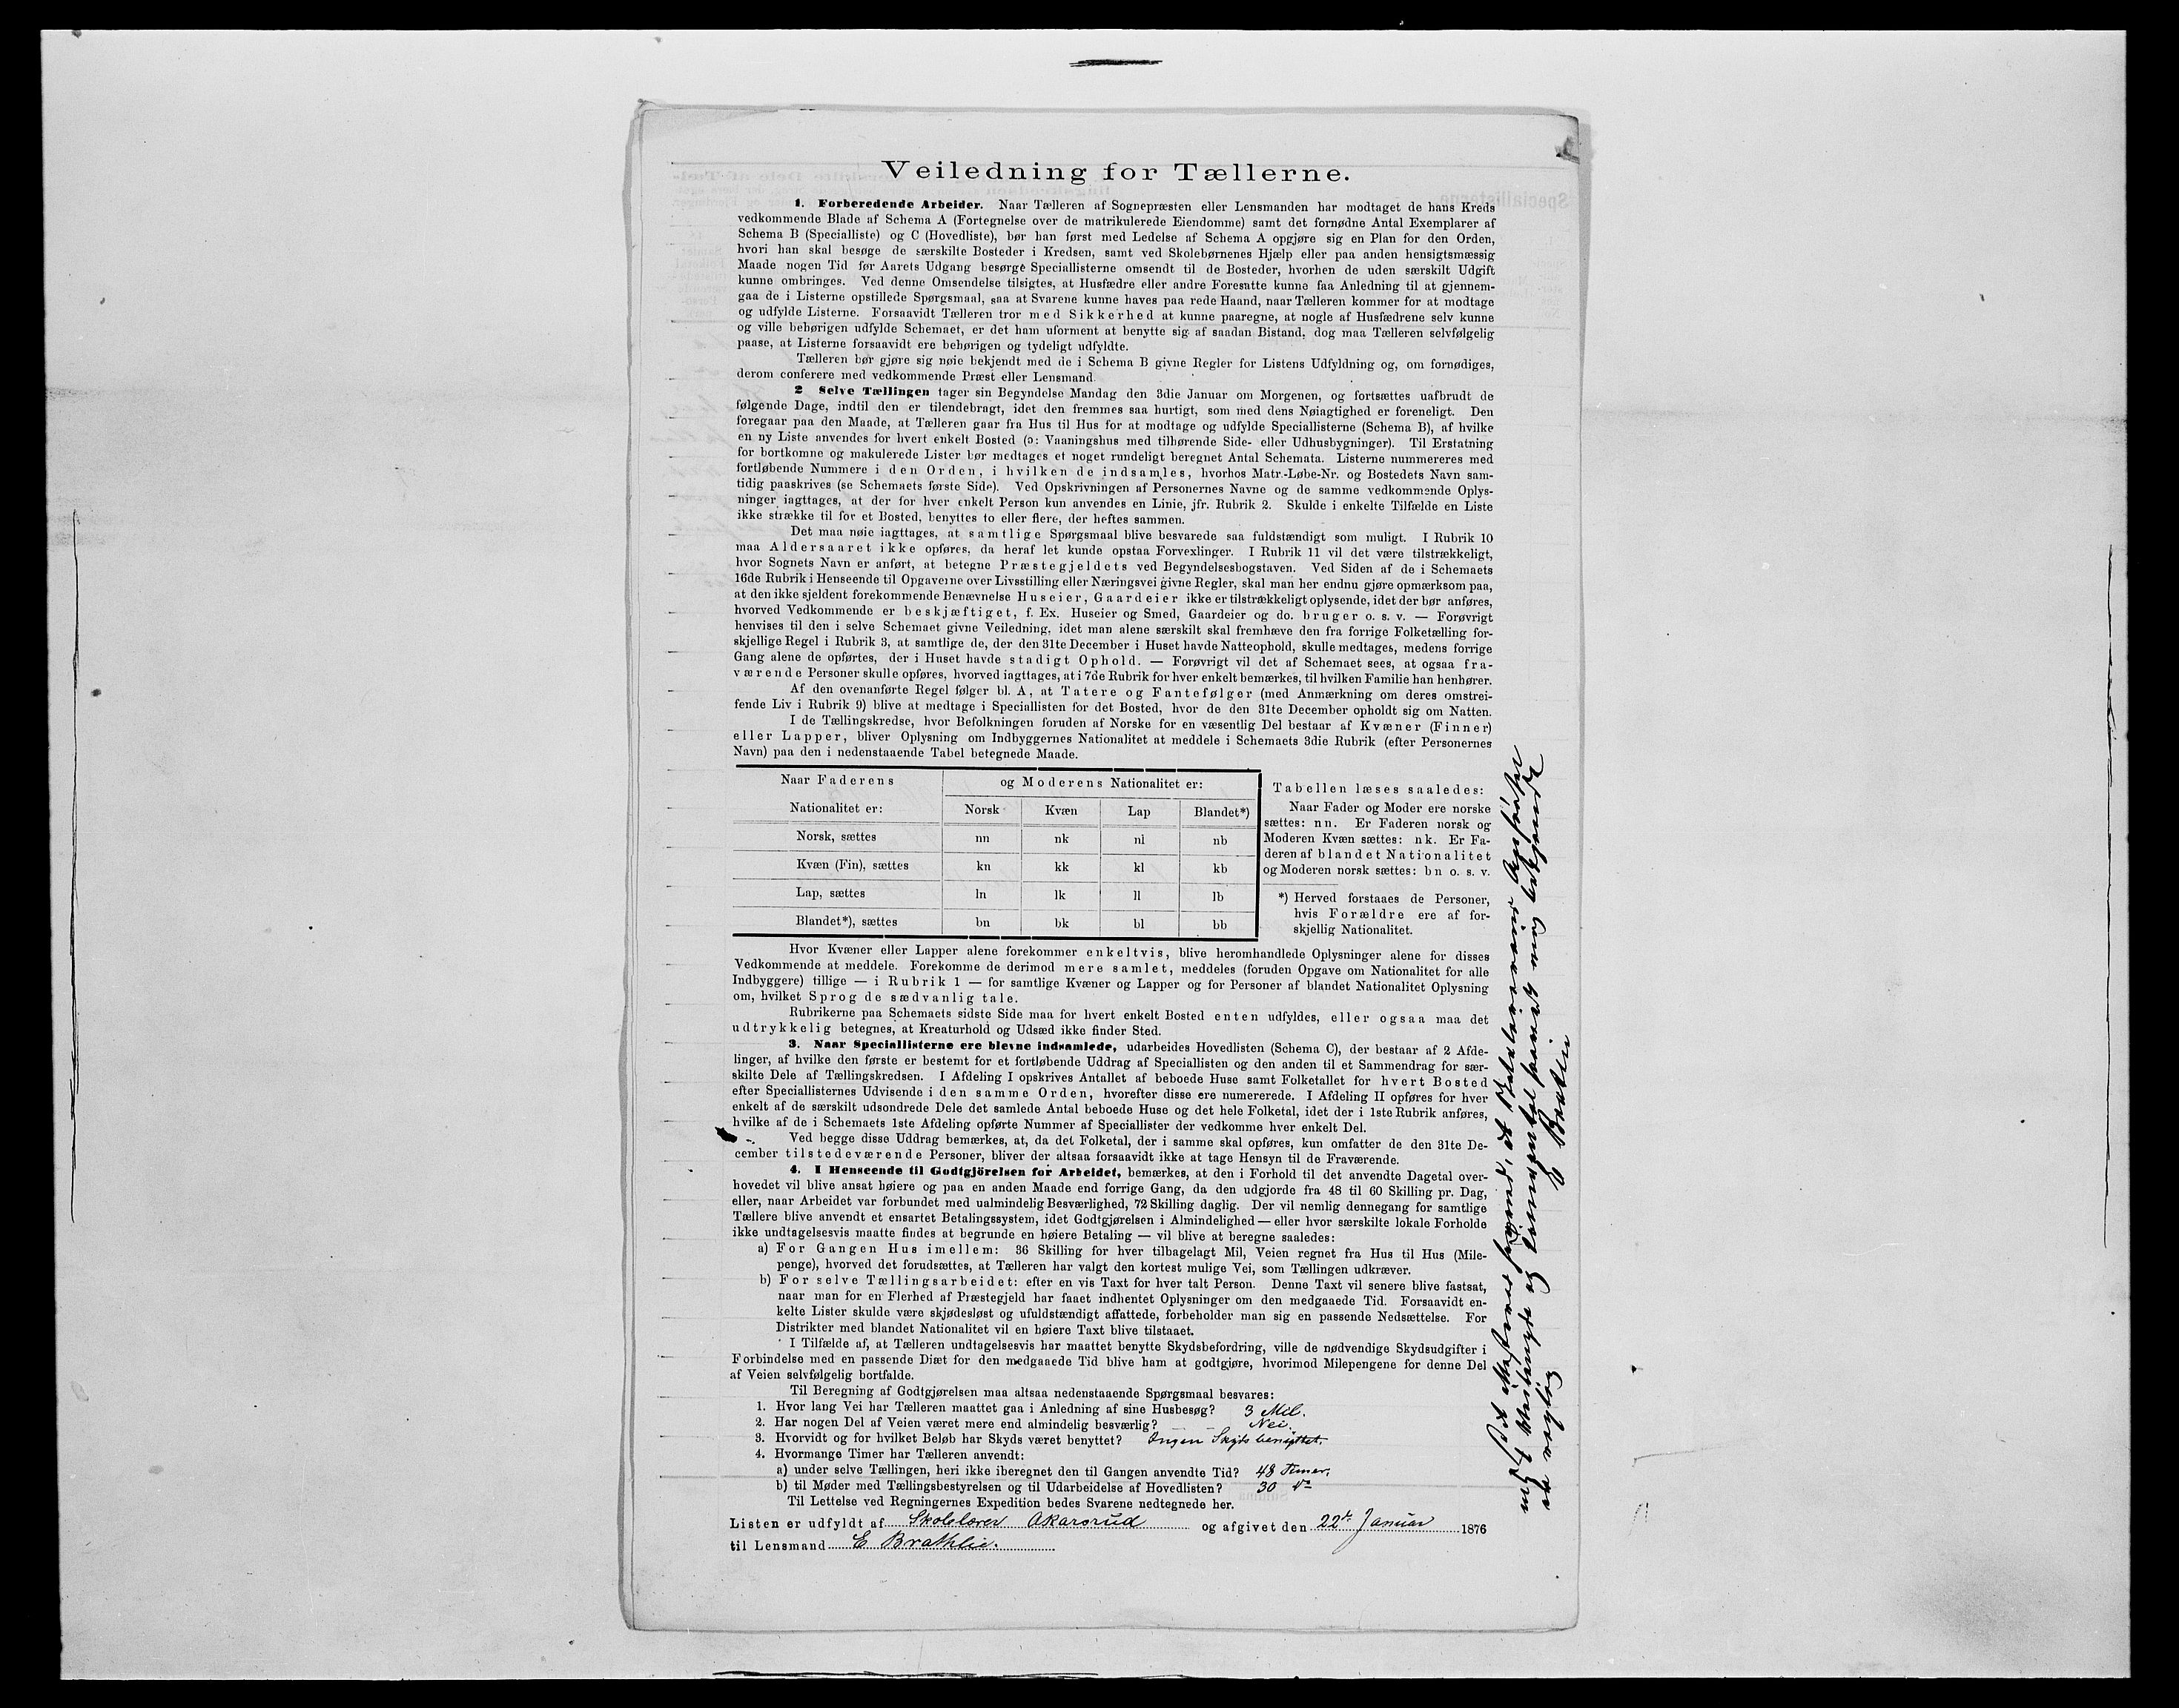 Veiledning for Tællerne.
1. Forberedende Arbeider. Naar Tælleren af Sognepræsten eller Lensmanden har modtaget de hans Kreds
vedkommende Blade af Schema A (Fortegnelse over de matrikulerede Eiendomme) samt det fornødne Antal Exemplarer af
Schema B (Specialliste) og C (Hovedliste), bør han først med Ledelse af Schema A opgjøre sig en Plan for den Orden,
hvori han skal besøge de særskilte Bosteder i Kredsen, samt ved Skolebørnenes Hjælp eller paa anden hensigtsmæssig
Maade nogen Tid før Aarets Udgang besørge Speciallisterne omsendt til de Bosteder, hvorhen de uden særskilt Udgift
kunne ombringes. Ved denne Omsendelse tilsigtes, at Husfædre eller andre Foresatte kunne faa Anledning til at gjennem-
gaa de i Listerne opstillede Spørgsmaal, saa at Svarene kunne haves paa rede Haand, naar Tælleren kommer for at modtage
og udfylde Listerne. Forsaavidt Tælleren tror med Sikkerhed at kunne paaregne, at nogle af Husfædrene selv kunne
og ville behørigen udfylde Schemaet, er det ham uforment at benytte sig af saadan Bistand, dog maa Tælleren selvfølgelig
paase, at Listerne forsaavidt ere behørigen og tydeligt udfyldte.
Tælleren bør gjøre sig nøie bekjendt med de i Schema B givne Regler for Listens Udfyldning og, om fornødiges,
derom conferere med vedkommende Præst eller Lensmand.
2 Selve Tællingen tager sin Begyndelse Mandag den 3die Januar om Morgenen, og fortsættes uafbrudt de
følgende Dage, indtil den er tilendebragt, idet den fremmes saa hurtigt, som med dens Nøiagtighed er foreneligt. Den
foregaar paa den Maade, at Tælleren gaar fra Hus til Hus for at modtage og udfylde Speciallisterne (Schema B), af hvilke
en ny Liste anvendes for hvert enkelt Bosted (ɔ: Vaaningshus med tilhørende Side- eller Udhusbygninger). Til Erstatning
for bortkomne og makulerede Lister bør medtages et noget rundeligt beregnet Antal Schemata. Listerne nummereres med
fortløbende Nummere i den Orden, i hvilken de indsamles, hvorhos Matr.-Løbe-Nr. og Bostedets Navn sam-
tidig paaskrives (se Schemaets første Side). Ved Opskrivningen af Personernes Navne og de samme vedkommende Oplys-
ninger iagttages, at der for hver enkelt Person kun anvendes en Linie, jfr. Rubrik 2. Skulde i enkelte Tilfælde en Liste
ikke strække til for et Bosted, benyttes to eller flere, der heftes sammen.
Det maa nøie iagttages, at samtlige Spørgsmaal blive besvarede saa fuldstændigt som muligt. I Rubrik 10
maa Aldersaaret ikke opføres, da heraf let kunde opstaa Forvexlinger. I Rubrik 11 vil det være tilstrækkeligt,
hvor Sognets Navn er anført, at betegne Præstegjeldets ved Begyndelsesbogstaven. Ved Siden af de i Schemaets
16de Rubrik i Henseende til Opgaverne over Livsstilling eller Næringsvei givne Regler, skal man her endnu gjøre opmærksom paa,
at den ikke sjeldent forekommende Benævnelse Huseier, Gaardeier ikke er tilstrækkeligt oplysende, idet der bør anføres,
hvorved Vedkommende er beskjæftiget, f. Ex. Huseier og Smed, Gaardeier og do. bruger o. s. v. — Forøvrigt
henvises til den i selve Schemaet givne Veiledning, idet man alene særskilt skal fremhæve den fra forrige Folketælling for-
skjellige Regel i Rubrik 3, at samtlige de, der den 31te December i Huset havde Natteophold, skulle medtages, medens forrige
Gang alene de opførtes, der i Huset havde stadigt Ophold. — Forøvrigt vil det af Schemaet sees, at ogsaa fra-
værende Personer skulle opføres, hvorved iagttages, at i 7de Rubrik for hver enkelt bemærkes, til hvilken Familie han henhører.
Af den ovenanførte Regel følger bl. A, at Tatere og Fantefølger (med Anmærkning om deres omstrei-
fende Liv i Rubrik 9) blive at medtage i Speciallisten for det Bosted, hvor de den 31te December opholdt sig om Natten.
I de Tællingskredse, hvor Befolkningen foruden af Norske for en væsentlig Del bestaar af Kvæner (Finner)
eller Lapper, bliver Oplysning om Indbyggernes Nationalitet at meddele i Schemaets 3die Rubrik (efter Personernes
Navn) paa den i nedenstaaende Tabel betegnede Maade.
Naar Faderens Nationalitet er: og Moderens Nationalitet er:
Norsk Kvæn Lap Blandet*)
Norsk, sættes nn nk nl nb
Kvæn (Fin), sættes kn kk kl kb
Lap, sættes ln lk ll lb
Blandet*), sættes bn bk bl bb
Tabellen læses saaledes:
Naar Fader og Moder ere norske
sættes: nn. Er Faderen norsk og
Moderen Kvæn sættes: nk. Er Fa-
deren af blandet Nationalitet
og Moderen norsk sættes: bn o. s. v.
*) Herved forstaaes de Personer,
hvis Forældre ere af for-
skjellig Nationalitet.
Hvor Kvæner eller Lapper alene forekommer enkeltvis, blive heromhandlede Oplysninger alene for disses
Vedkommende at meddele. Forekomme de derimod mere samlet, meddeles (foruden Opgave om Nationalitet for alle
Indbyggere) tillige — i Rubrik 1 — for samtlige Kvæner og Lapper og for Personer af blandet Nationalitet Oplysning
om, hvilket Sprog de sædvanlig tale.
Rubrikerne paa Schemaets sidste Side maa for hvert enkelt Bosted enten udfyldes, eller ogsaa maa det
udtrykkelig betegnes, at Kreaturhold og Udsæd ikke finder Sted.
3. Naar Speciallisterne ere blevne indsamlede, udarbeides Hovedlisten (Schema C), der bestaar af 2 Afde-
linger, af hvilke den første er bestemt for et fortløbende Uddrag af Speciallisten og den anden til et Sammendrag for sær-
skilte Dele af Tællingskredsen. I Afdeling I opskrives Antallet af beboede Huse samt Folketallet for hvert Bosted
efter Speciallisternes Udvisende i den samme Orden, hvorefter disse ere numererede. I Afdeling II opføres for hver
enkelt af de særskilt udsondrede Dele det samlede Antal beboede Huse og det hele Folketal, idet der i 1ste Rubrik anføres,
hvilke af de i Schemaets 1ste Afdeling opførte Nummer af Speciallister der vedkomme hver enkelt Del.
Ved begge disse Uddrag bemærkes, at, da det Folketal, der i samme skal opføres, kun omfatter de den 31te De-
cember tilstedeværende Personer, bliver der altsaa forsaavidt ikke at tage Hensyn til de Fraværende.
4. I Henseende til Godtgjörelsen for Arbeidet, bemærkes, at den i Forhold til det anvendte Dagetal over-
hovedet vil blive ansat høiere og paa en anden Maade end forrige Gang, da den udgjorde fra 48 til 60 Skilling pr. Dag,
eller, naar Arbeidet var forbundet med ualmindelig Besværlighed, 72 Skilling daglig. Der vil nemlig dennegang for samtlige
Tællere blive anvendt et ensartet Betalingssystem, idet Godtgjørelsen i Almindelighed — eller hvor særskilte lokale Forholde
ikke undtagelsesvis maatte findes at begrunde en høiere Betaling — vil blive at beregne saaledes:
a) For Gangen Hus imellem: 36 Skilling for hver tilbagelagt Mil, Veien regnet fra Hus til Hus (Mile-
penge), hvorved det forudsættes, at Tælleren har valgt den kortest mulige Vei, som Tællingen udkræver.
b) For selve Tællingsarbeidet: efter en vis Taxt for hver talt Person. Denne Taxt vil senere blive fastsat,
naar man for en Flerhed af Præstegjeld har faaet indhentet Oplysninger om den medgaaede Tid. Forsaavidt en-
kelte Lister skulde være skjødesløst og ufuldstændigt affattede, forbeholder man sig en passende Nedsættelse. For
Distrikter med blandet Nationalitet vil en høiere Taxt blive tilstaaet.
I Tilfælde af, at Tælleren undtagelsesvis har maattet benytte Skydsbefordring, ville de nødvendige Skydsudgifter i
Forbindelse med en passende Diæt for den medgaaede Tid blive ham at godtgjøre, hvorimod Milepengene for denne Del
af Veien selvfølgelig bortfalde.
Til Beregning af Godtgjørelsen maa altsaa nedenstaaende Spørgsmaal besvares:
1. Hvor lang Vei har Tælleren maattet gaa i Anledning af sine Husbesøg? 3 Mil.
2. Har nogen Del af Veien været mere end almindelig besværlig? Nei.
3. Hvorvidt og for hvilket Beløb har Skyds været benyttet? Ingen Skyds benyttet.
4. Hvormange Timer har Tælleren anvendt:
a) under selve Tællingen, heri ikke iberegnet den til Gangen anvendte Tid? 48 Timer.
b) til Møder med Tællingsbestyrelsen og til Udarbeidelse af Hovedlisten? 30 do
Til Lettelse ved Regningernes Expedition bedes Svarene nedtegnede her.
Listen er udfyldt af Skolelærer Akarsrud og afgivet den 22de Januar 1876
til Lensmand E Brathlie.